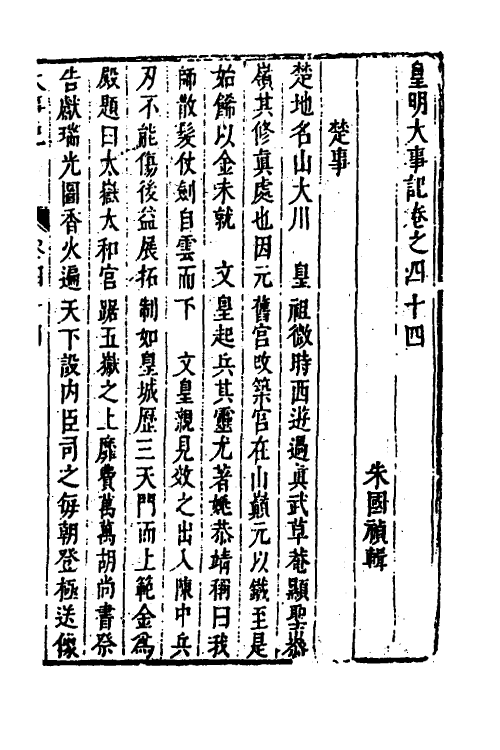 皇明大事記卷之四十四
朱國禎輯
楚事
楚地名山大川　皇祖微時西遊過真武草菴顯聖叅
嶺其修真處也因元舊宮改築宮在山巔元以鐵至是
始餙以金未就　文皇起兵其靈尤著姚恭靖稱曰我
師散髮仗劍自雲而下　文皇親見效之出入陳中兵
刃不能傷後益展拓制如皇城歷三天門而上範金為
殿題曰太嶽太和宮踞五嶽之上靡費萬萬胡尚書祭
告獻瑞光圖香火遍天下設內臣司之每朝登極送像